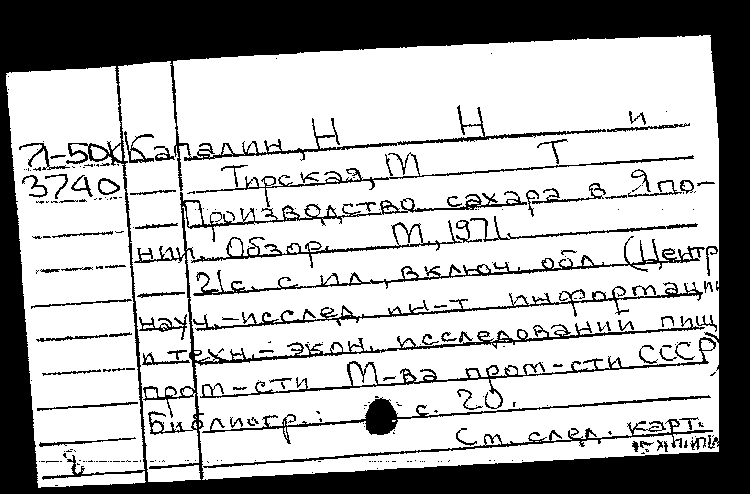 71-50К Капалин, Н Н и
3740 Тирская, М Т
Производство сахара в Япо-
нии. Обзор. М., 1971.
21с. с ил., включ. обл. (Центр
науч.-исслед. ин-т информаци
и техн.-экон. исследований пищ
пром-сти М-ва пром-сти СССР)
Библиогр.: с. 20.
См. след. карт.